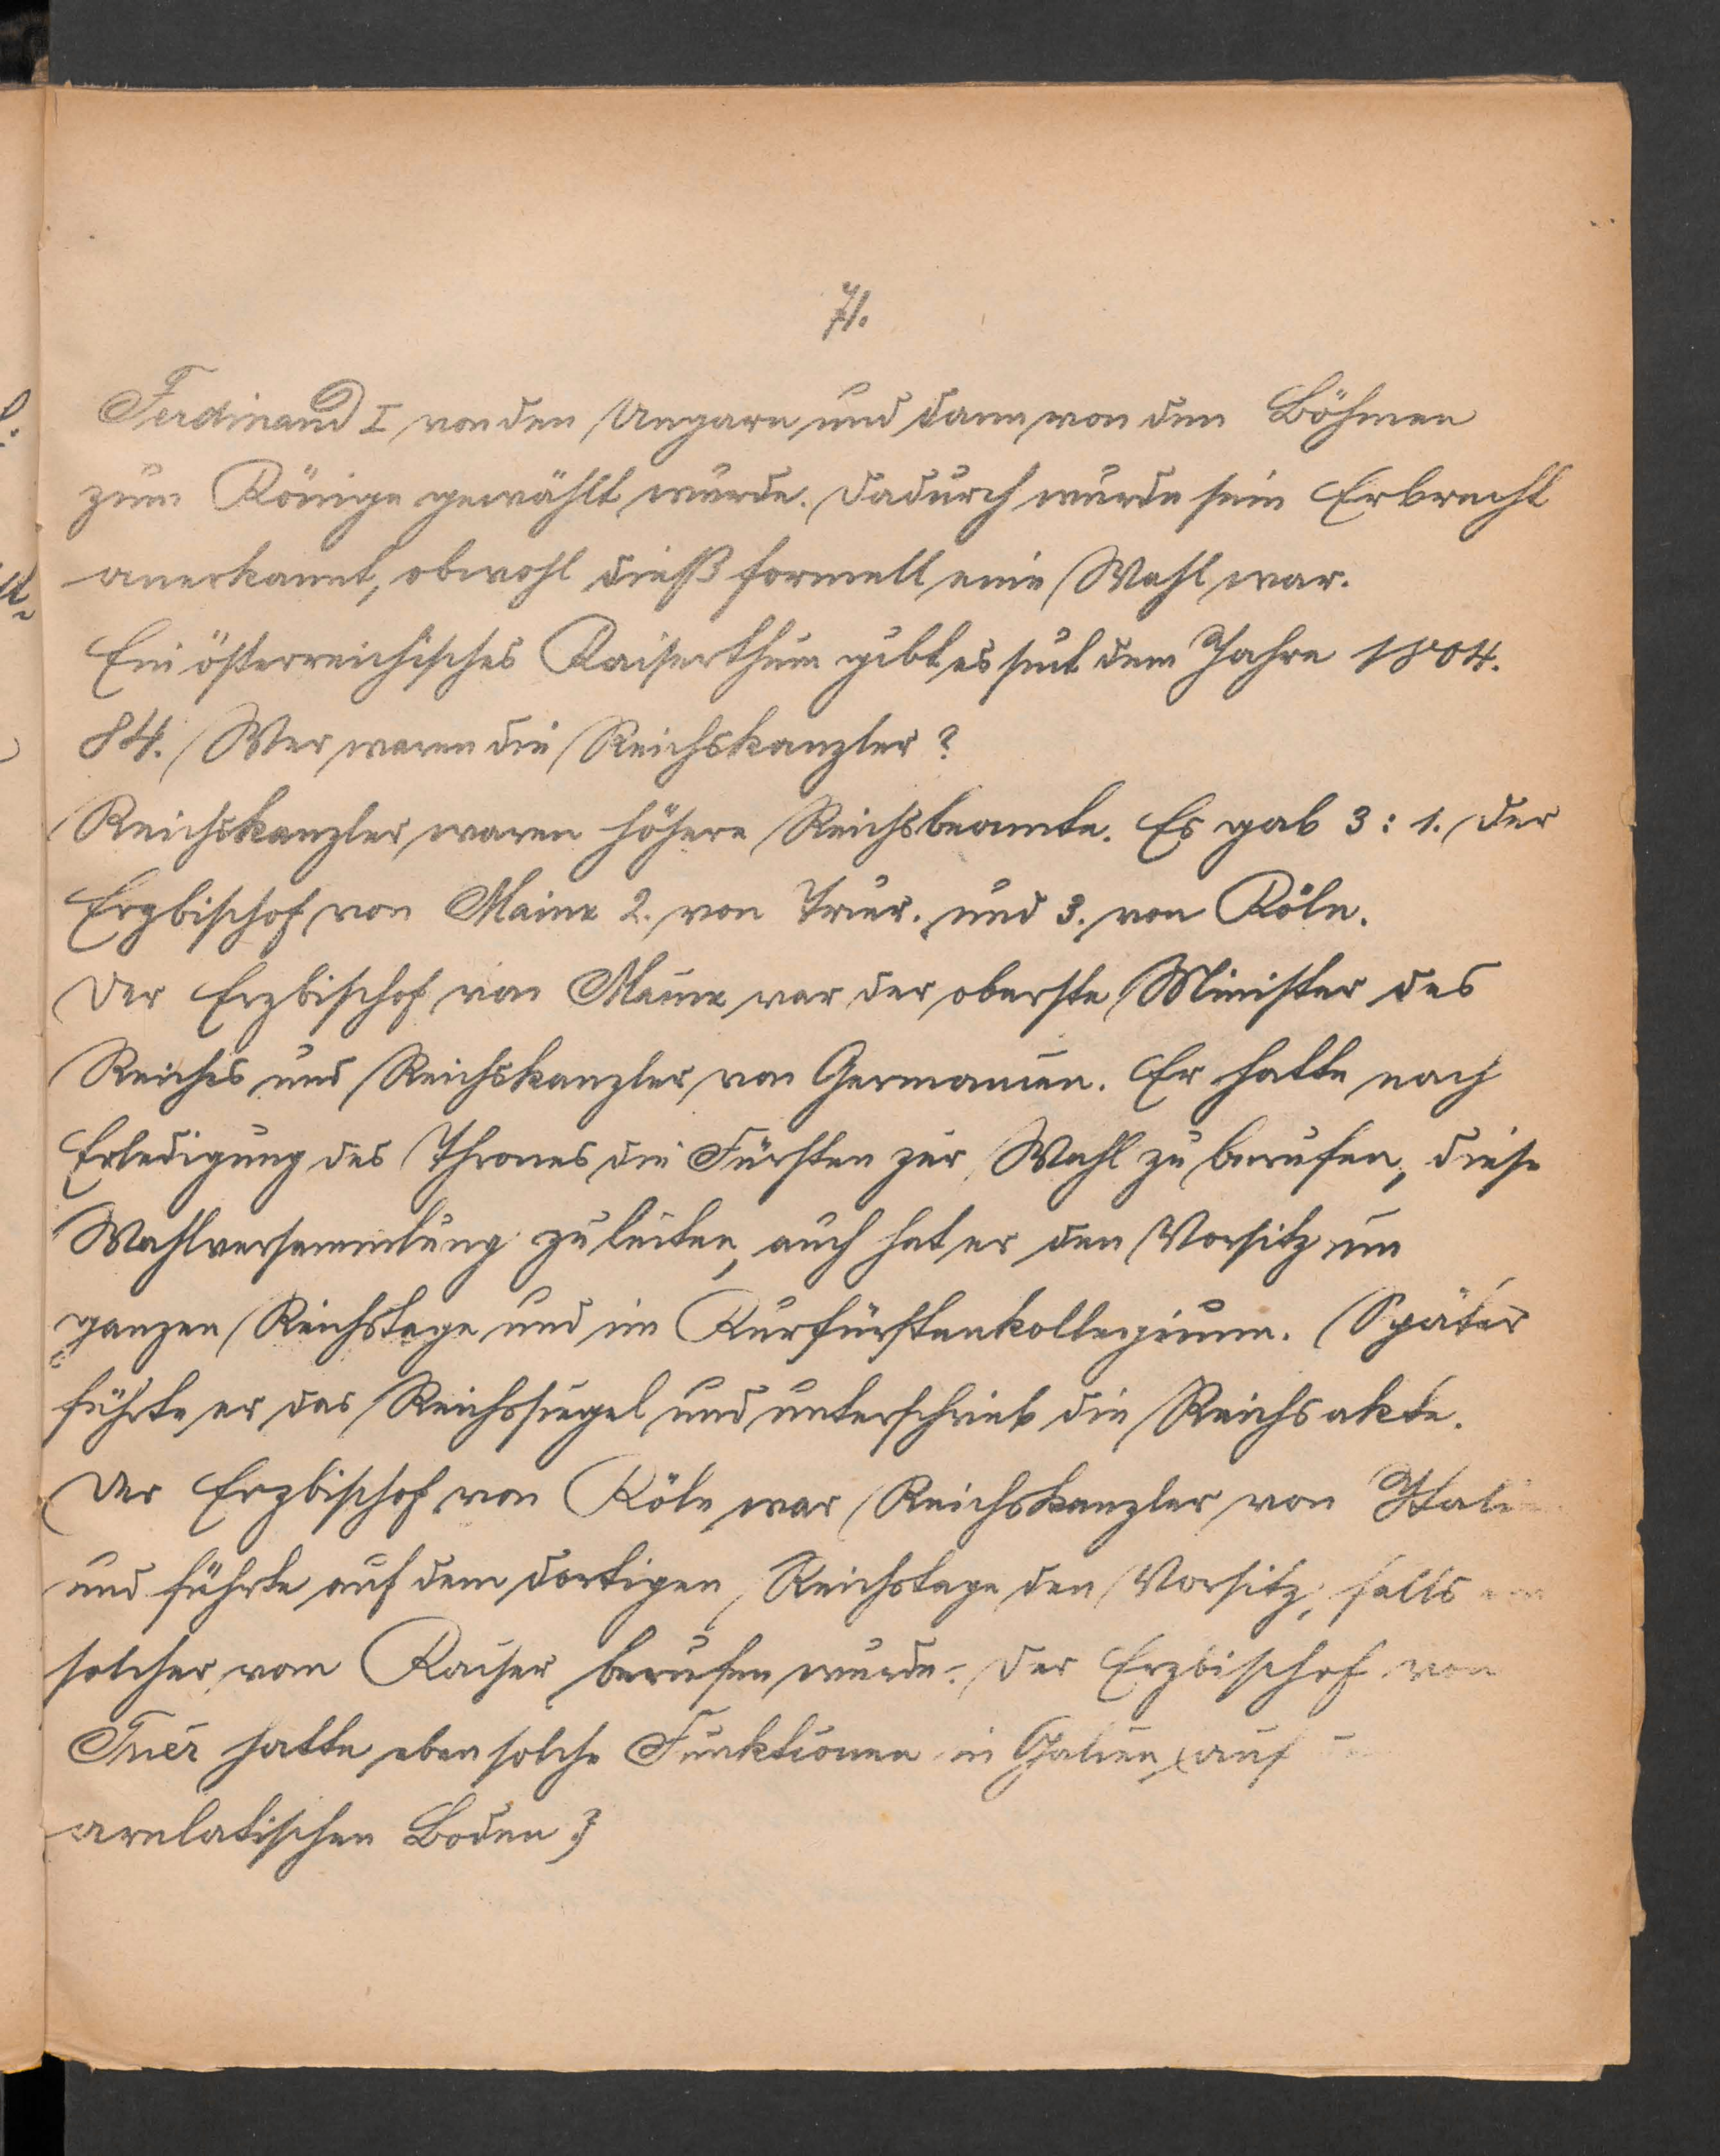 71.
Ferdinand I von den Ungarn und dann von den Böhmen
zum Könige gewählt wurde. Dadurch wurde sein Erbrecht
anerkannt, obwohl dieß formell eine Wahl war.
Ein österreichisches Kaiserthum gibt es seit dem Jahre 1804.
84. Wer waren die Reichskanzler?
Reichskanzler waren höhere Reichsbeamte. Es gab 3: 1. Der
Erzbischof von Mainz 2. von Trier. und 3. von Köln.
Der Erzbischof von Mainz war der oberste Minister des
Reiches und Reichskanzler von Germanien. Er hatte nach
Erledigung des Thrones die Fürsten zur Wahl zu berufen, diese
Wahlversammlung zu leiten, auch hat er den Vorsitz im
ganzen Reichstage und im Kurfürstenkollegium. Später
führte er das Reichssiegel und unterschrieb die Reichsakte.
Der Erzbischof von Köln war Reichskanzler von Itali
und führte auf dem dortigen Reichstage den Vorsitz, falls
solcher vom Kaiser berufen wurde. Der Erzbischof von
Trier hatte eben solche Funktionen in Galien, auf
arelatischen Boden.}